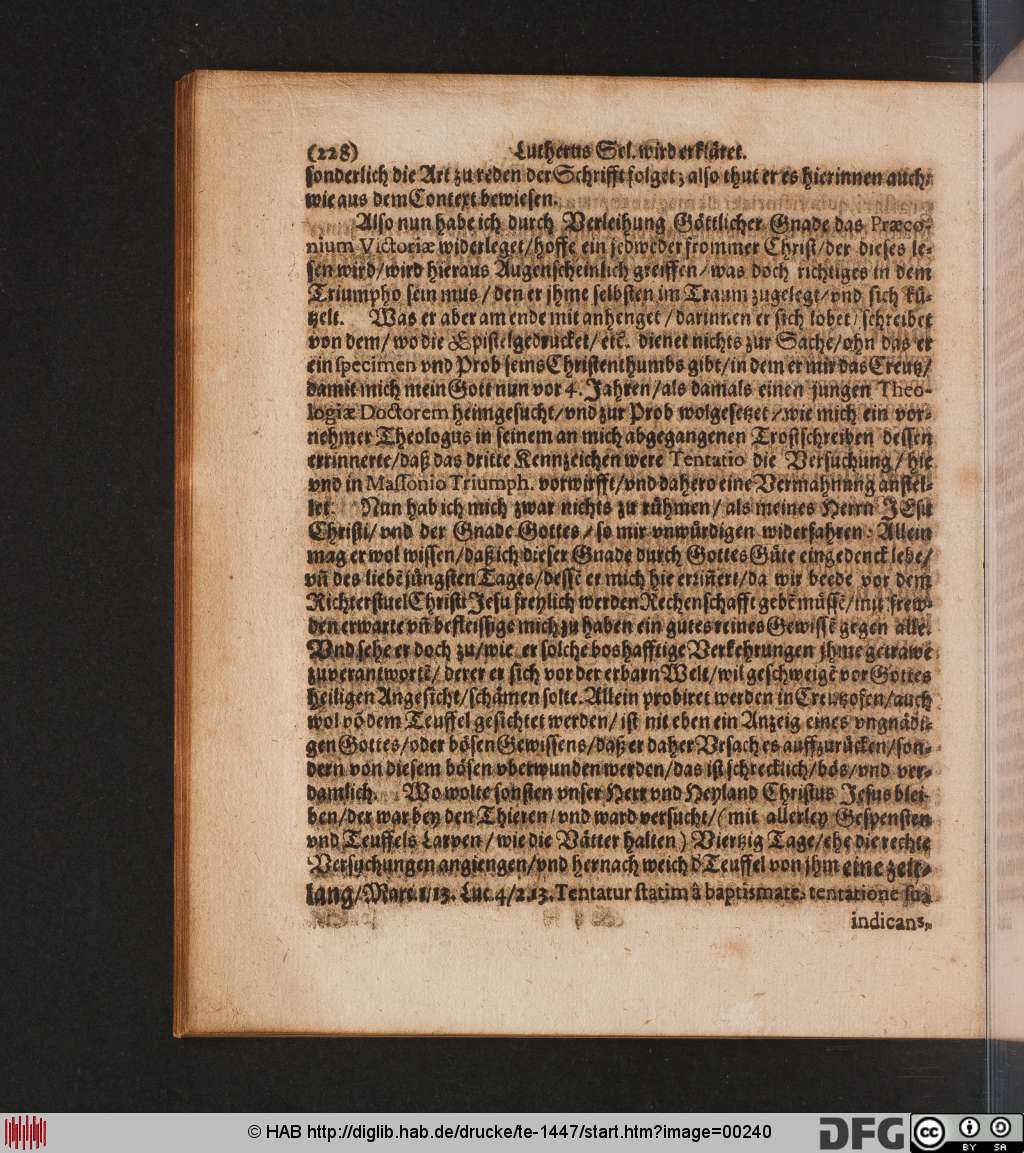 (228) Lutherus Sel. wird erkläret.
sonderlich die Art zu reden der Schrifft folget; also thut er es hierinnen auch/
wie aus dem Context bewiesen.
Also nun habe ich durch Verleihung Göttlicher Gnade das Præco-
nium Victoriæ widerleget/ hoffe ein jedweder frommer Christ/ der dieses le-
sen wird/ wird hieraus Augenscheinlich greiffen/ was doch richtiges in dem
Triumpho sein mus/ den er jhme selbsten im Traum zugelegt/ vnd sich kü-
tzelt. Was er aber am ende mit anhenget/ darinnen er sich lobet/ schreibet
von dem/ wo die Epistel gedrucket/ etc. dienet nichts zur Sache/ ohn das er
ein specimen vnd Prob seins Christenthumbs gibt/ in dem er mir das Creutz/
damit mich mein Gott nun vor 4. Jahren/ als damals einen jungen Theo-
logiæ Doctorem heimgesucht/ vnd zur Prob wolgesetzet/ wie mich ein vor-
nehmer Theologus in seinem an mich abgegangenen Trostschreiben dessen
errinnerte/ daß das dritte Kennzeichen were Tentatio die Versuchung/ hie
vnd in Massonio Triumph. vorwirfft/ vnd dahero eine Vermahnung anstel-
let. Nun hab ich mich zwar nichts zu rühmen/ als meines Herrn JEsu
Christi/ vnd der Gnade Gottes/ so mir vnwürdigen widerfahren: Allein
mag er wol wissen/ daß ich dieser Gnade durch Gottes Güte eingedenck lebe/
vn̄ des liebē jüngsten Tages/ dessē er mich hie erin̄ert/ da wir beede vor dem
Richterstuel Christi Jesu freylich werden Rechenschafft gebē müssē/ mit frew-
den erwarte vn̄ befleissige mich zu haben ein gutes reines Gewissē gegen alle.
Vnd sehe er doch zu/ wie er solche boshafftige Verkehrungen jhme getrawe
zuverantwortē/ derer er sich vor der erbarn Welt/ wil geschweigē vor Gottes
heiligen Angesicht/ schämen solte. Allein probiret werden in Creutzofen/ auch
wol vō dem Teuffel gesichtet werden/ ist nit eben ein Anzeig eines vngnädi-
gen Gottes/ oder bösen Gewissens/ daß er daher Vrsach es auffzurücken/ son-
dern von diesem bösen vberwunden werden/ das ist schrecklich/ bös/ vnd ver-
damlich. Wo wolte sonsten vnser Herr vnd Heyland Christus Jesus blei-
ben/ der war bey den Thieren/ vnd ward versucht/ (mit allerley Gespensten
vnd Teuffels Larven/ wie die Vätter halten) Viertzig Tage/ ehe die rechte
Versuchungen angiengen/ vnd hernach weich d' Teuffel von jhm eine zeit-
lang/ Marc. 1/13. Luc. 4/2.13. Tentatur statim â baptismate, tentatione sua
indicans,
© HAB http://diglib.hab.de/drucke/te-1447/start.htm?image=00240
DFG
cc BY SA